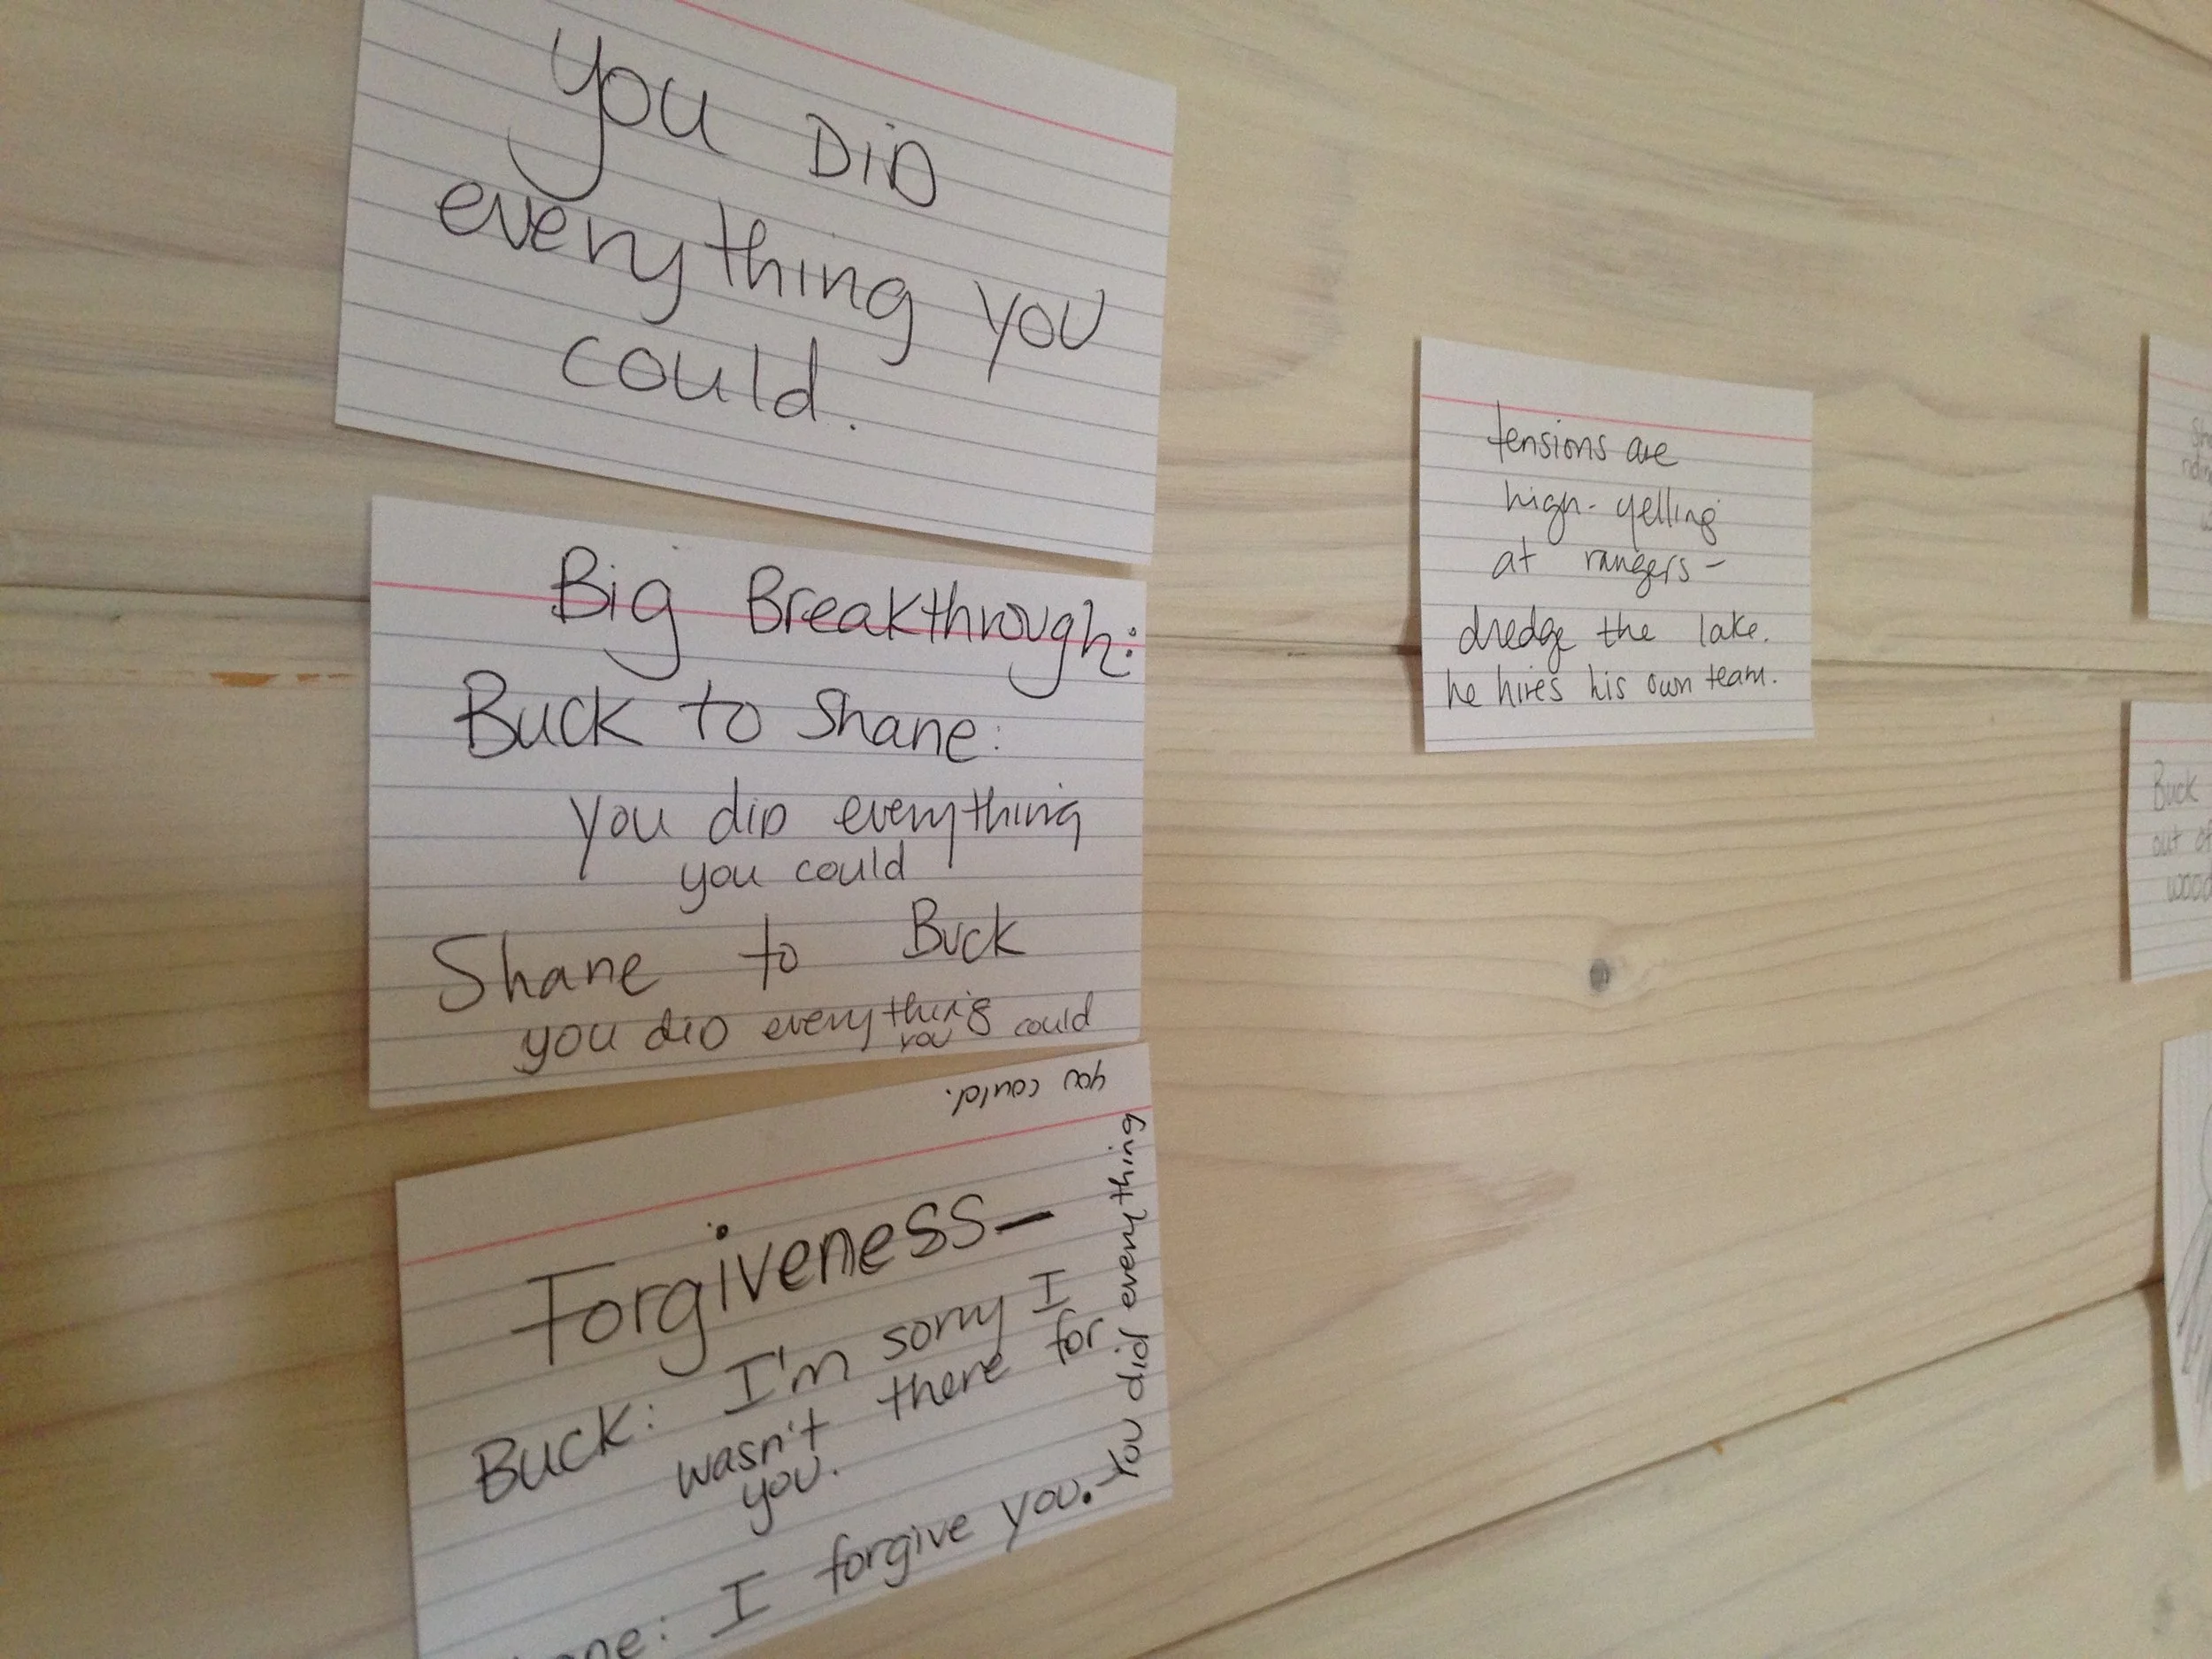 you DiD
everything you
could.
Big Breakthrough:
Buck to Shane:
you did everything
you could
Shane to Buck
you did everything
you could
Forgiveness—
Buck: I'm sorry I
wasn't there for
you.
I forgive you.-
You did everything
you could.
tensions are
high- yelling
at rangers -
dredge the lake.
he hires his own team.
Buck
out of